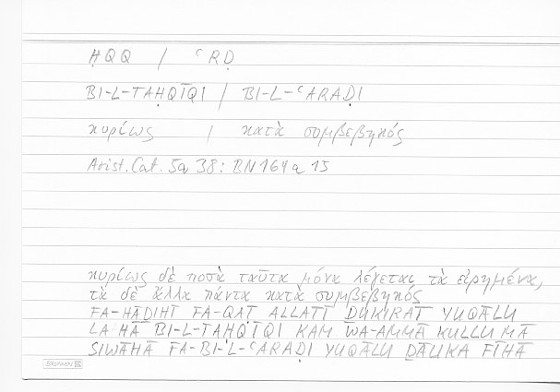 ḤQQ / ʿRḌ
BI-L-TAḤQĪQI / BI-L-ʿARAḌI
κυρίως / κατὰ συμβεβηκός
Arist. Cat. 5a 38: BN 164a 15
κυρίως δὲ ποσὰ ταῦτα μόνα λέγεται τὰ εἰρημένα,
τὰ δὲ ἄλλα πάντα κατὰ συμβεβηκός
FA-HĀḎIHĪ FA-QAṬ ALLATĪ ḎUKIRAT YUQĀLU
LA-HĀ BI-L-TAḤQĪQI KAM WA-AMMĀ KULLU MĀ
SIWĀHĀ FA-BI-L-ʿARAḌI YUQĀLU ḎĀLIKA FĪHĀ